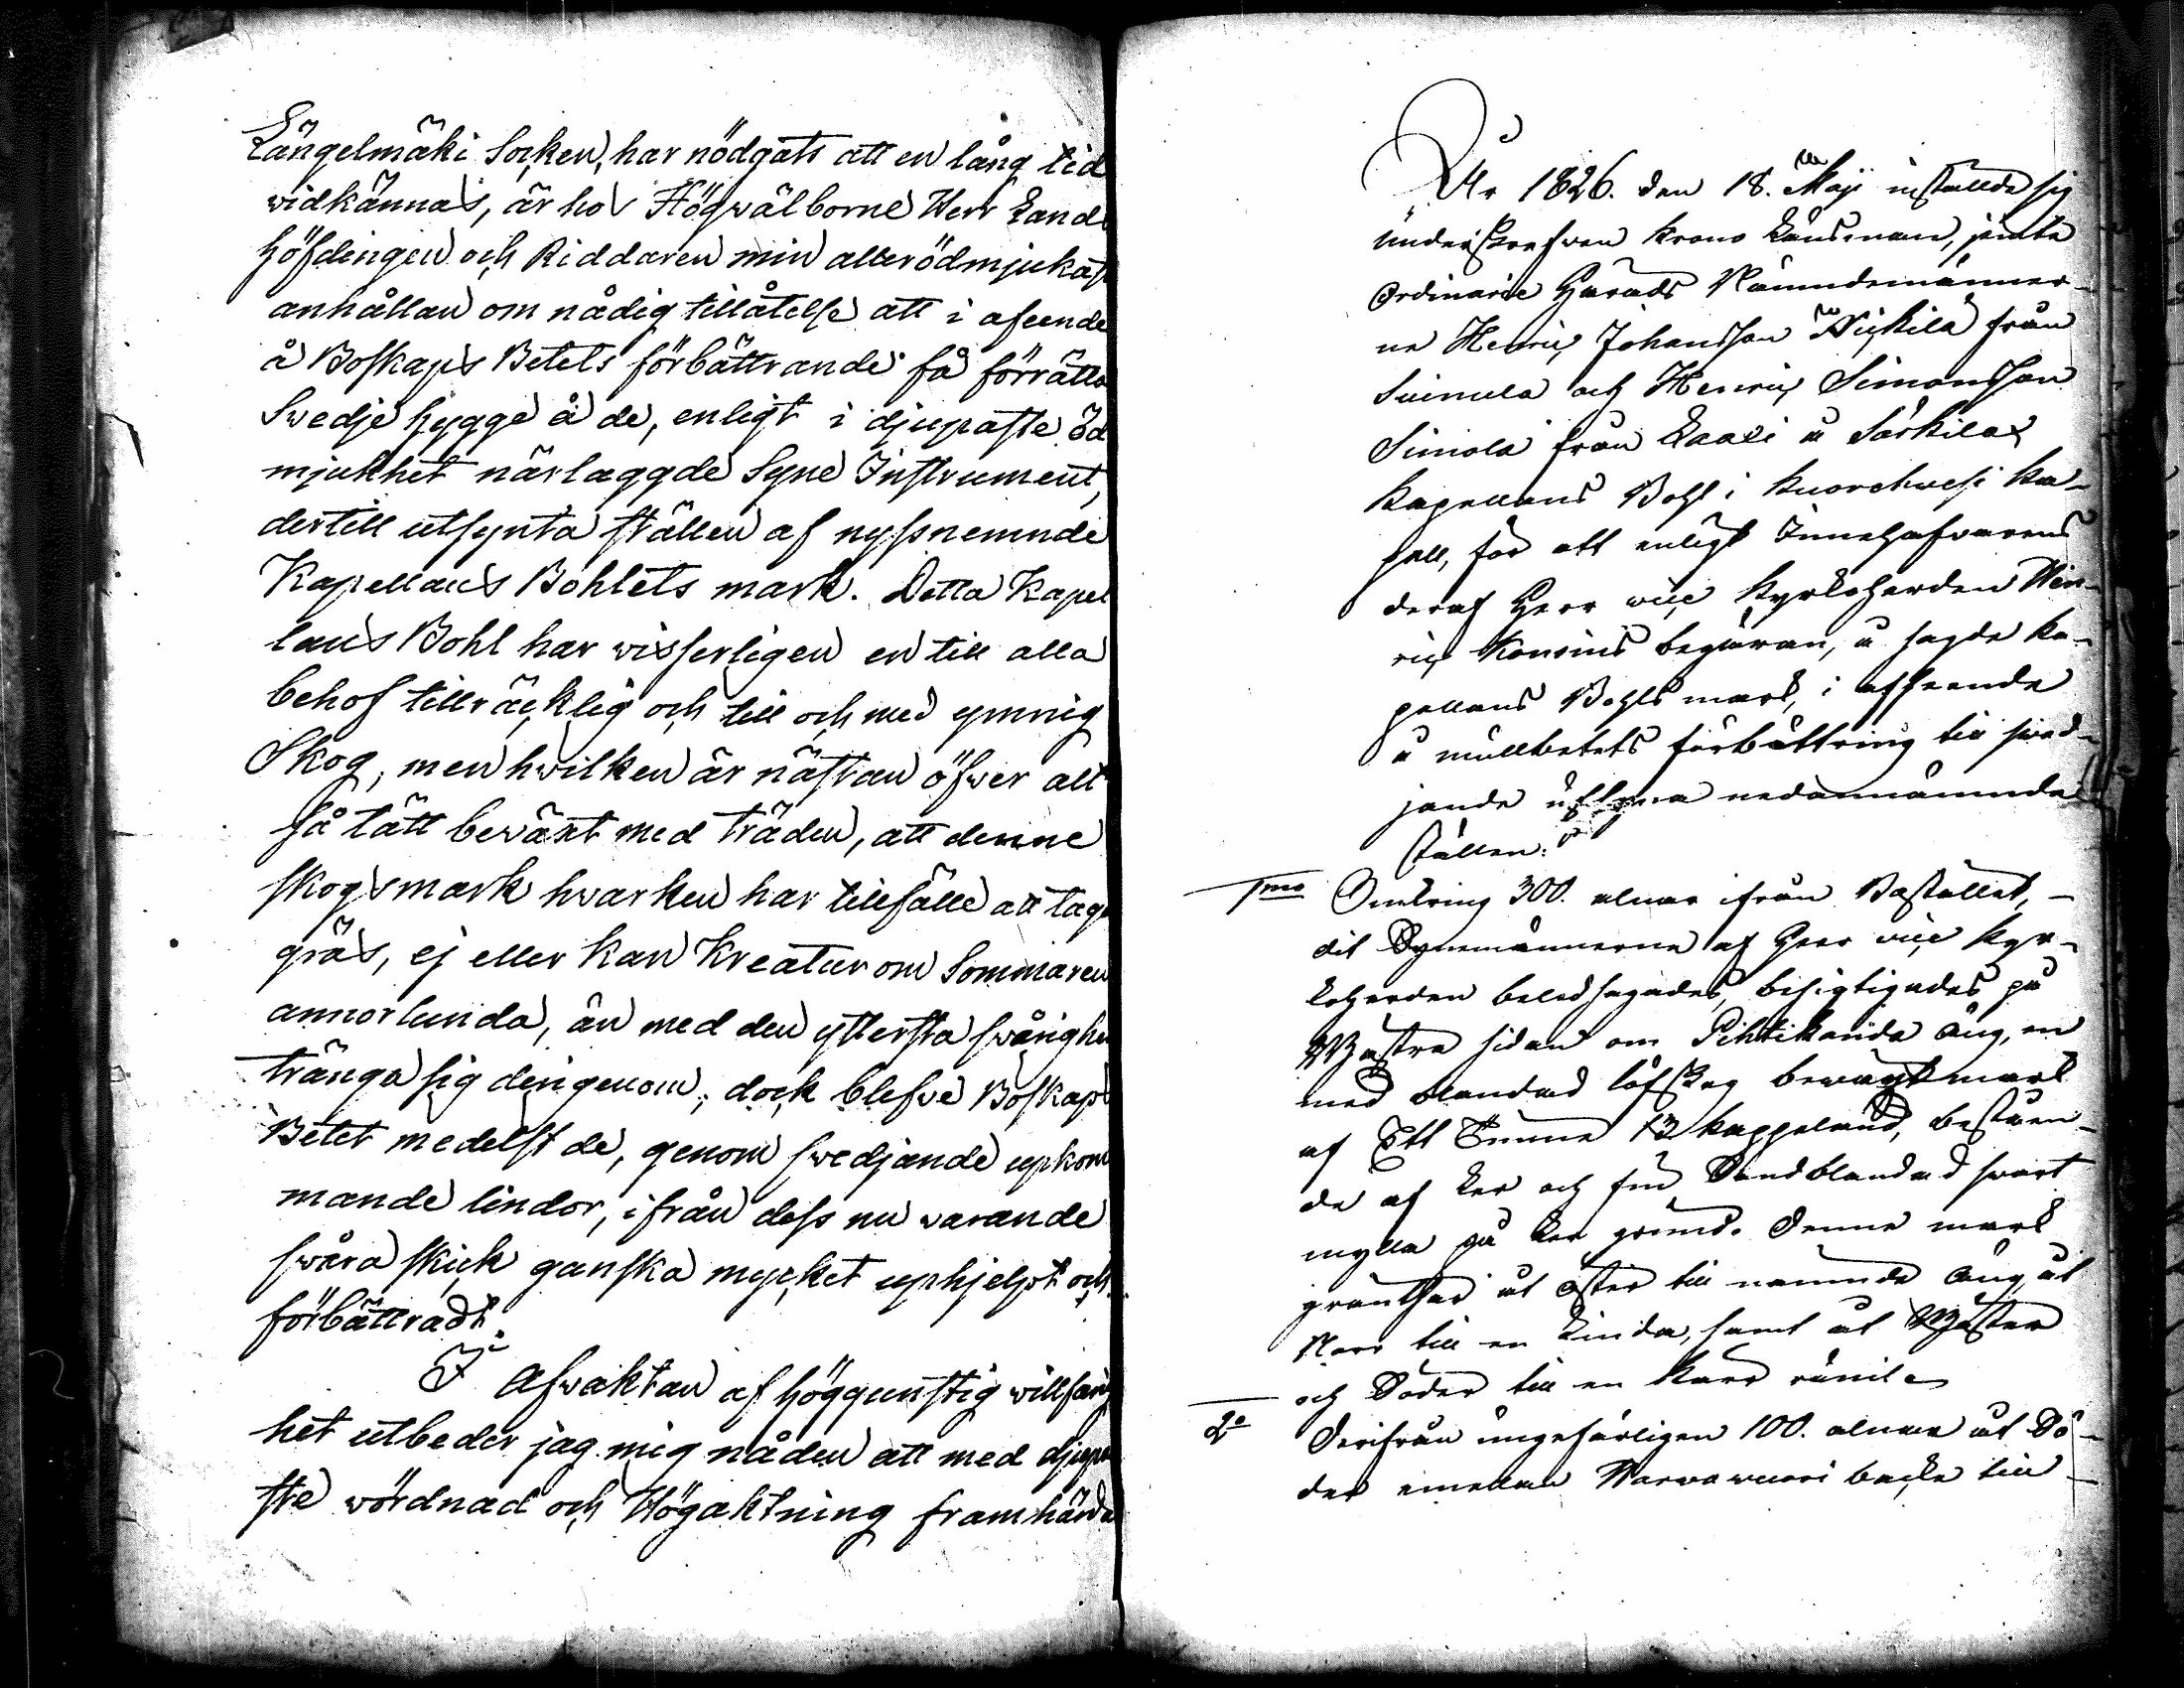 Längelmäki Socken, har nödgats att en lång tid
widkännas, är hos Högwälborne Herr Lands
höfdingen och Riddaren min allerödmjukast
anhållan om nådig tillåtelse att i afseende
å Boskaps Betets förbättrande få förrätta
Swedje hygge å de, enligt i djupaste Öd
mjukhet närlaggde Syne Instrument,
dertill utsynta ställen af nyssnemnde
Kapellans Bohlets mark. Detta Kapel
lans Bohl har wisserligen en till alla
behof tillräcklig och till och med ymnig
Skog, men hwilken är nästan öfwer alt
så tätt bewäxt med träden, att denne
skogsmark hwarken har tillfälle att taga
gräs, ej eller kan Kreatur om Sommaren
annorlunda, än med den yttersta swårighet
tränga sig derigenom; dock blefve Boskaps
Betet medelst de, genom swedjande upkom
mande lindor, ifrån dess nu warande
swåra skick ganska mycket uphjelpt och
förbättradt.
I afwaktan af höggunstig willfarig
het utbeder jag mig nåden att med djupa
ste wördnad och Högaktning framhärda
År 1826. den 18. Maji inställde sig
underskrefwen Krono Länsman, jemte
Ordinarie Härads Nämndemänner-
ne Henric Johansson Nickilä från
Suinula och Henric Simonsson
Simola från Laasi å Särkilax
Kapellans Bohl i Kuorehwesi Ka-
pell, för att enligt Innehafvarens
deraf Herr vice Kyrkoherden Hen-
ric Konsins begäran, å sagde Ka-
pellans Bohls mark, i afseende
å mulbetets förbättring till swed-
jande utsyna nedannämnde
ställen:
1mo Omkring 300. alnar ifrån Bostället,-
dit Synemännerna af Herr vice Kyr-
koherden beledsagades, besigtigades på
Wästra sidan om Pihtikanda äng, en
med blandad löfskog bewäxt mark
af Ett Tunne 13 kappeland, bestäen-
de af ler och fin Sandblandad swart
mylla på ler grund. Denne mark
gräntsar åt öster till nämnde äng, åt
Norr till en Linda, samt åt Wäster
och Söder till en Kärr ränil.
2o Derifrån ungefärligen 100. alnar åt Sö-
der emellan Warwawuori backe till